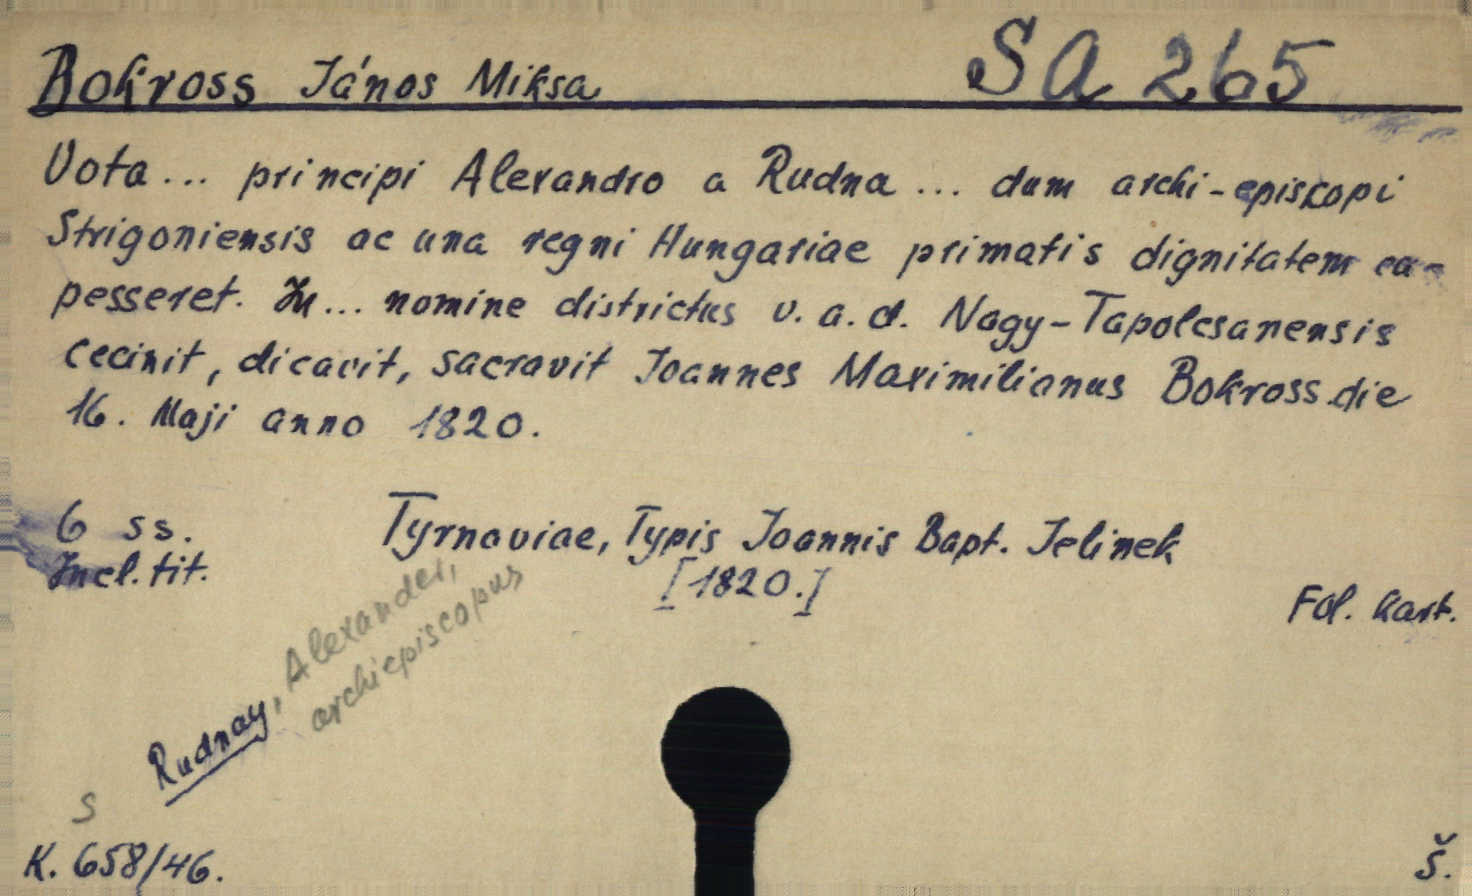 Bokross János Miksa SA 265
Vota ... principi Alexandro a Rudna ... dum archi-episcopi
Strigoniensis ac una regni Hungariae primatis dignitatem ca-
pesseret. In ... nomine districtus v. a. d. Nagy-Tapolcsanensis
cecinit, dicavit, sacravit Joannes Maximilianus Bokross die
16. Maji anno 1820.
6 ss. Tyrnaviae, Typis Joannis Bapt. Jelinek
Incl. tit. [1820.]
Fol. Kart.
Rudnay, Alexander,
archiepiscopus
S
K. 658/46. Š.